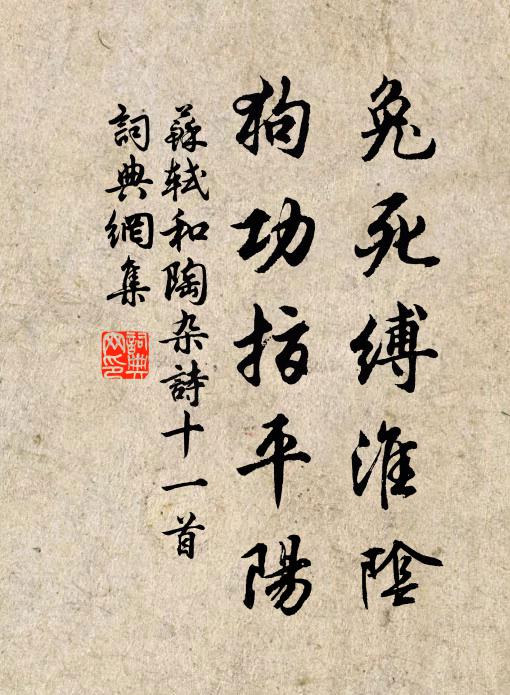 兔死縛淮陰
狗功指平陽
蘇軾和陶杂詩十一首
詞典網集
詞典網印